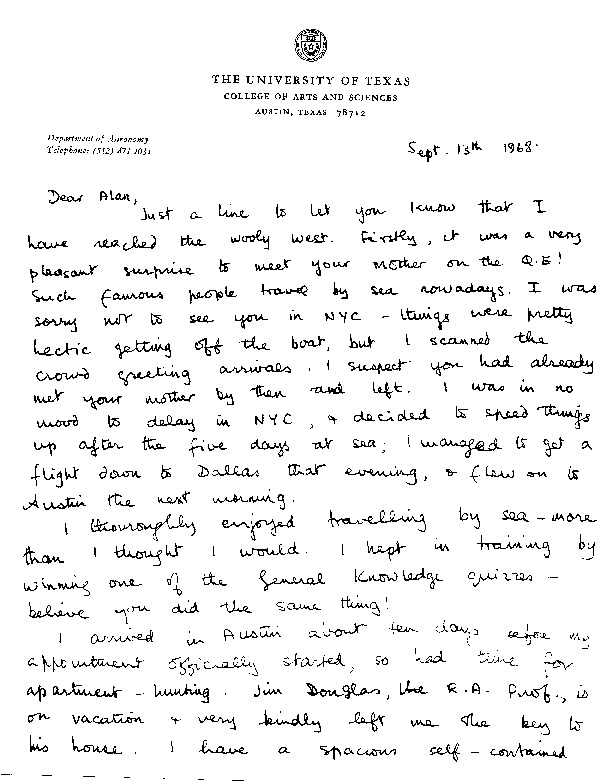 THE UNIVERSITY OF TEXAS
COLLEGE OF ARTS AND SCIENCES
AUSTIN, TEXAS 78712
Department of Astronomy
Telephone: (512) 471-1031
Sept. 13th 1968.
Dear Alan,
Just a line to let you know that I
have reached the wooly west. Firstly, it was a very
pleasant surprise to meet your mother on the Q.E!
Such famous people travel by sea nowadays. I was
sorry not to see you in NYC - things were pretty
hectic getting off the boat, but I scanned the
crowd greeting arrivals. I suspect you had already
met your mother by then and left. I was in no
mood to delay in NYC, & decided to speed things
up after the five days at sea; I managed to get a
flight down to Dallas that evening, & flew on to
Austin the next morning.
I thouroghly enjoyed travelling by sea - more
than I thought I would. I kept in training by
winning one of the General Knowledge quizzes -
believe you did the same thing!
I arrived in Austin about ten days before my
appointment officially started, so had time for
apartment - hunting. Jim Douglas, the R.A. Prof., is
on vacation & very kindly left me the key to
his house. I have a spacious self - contained